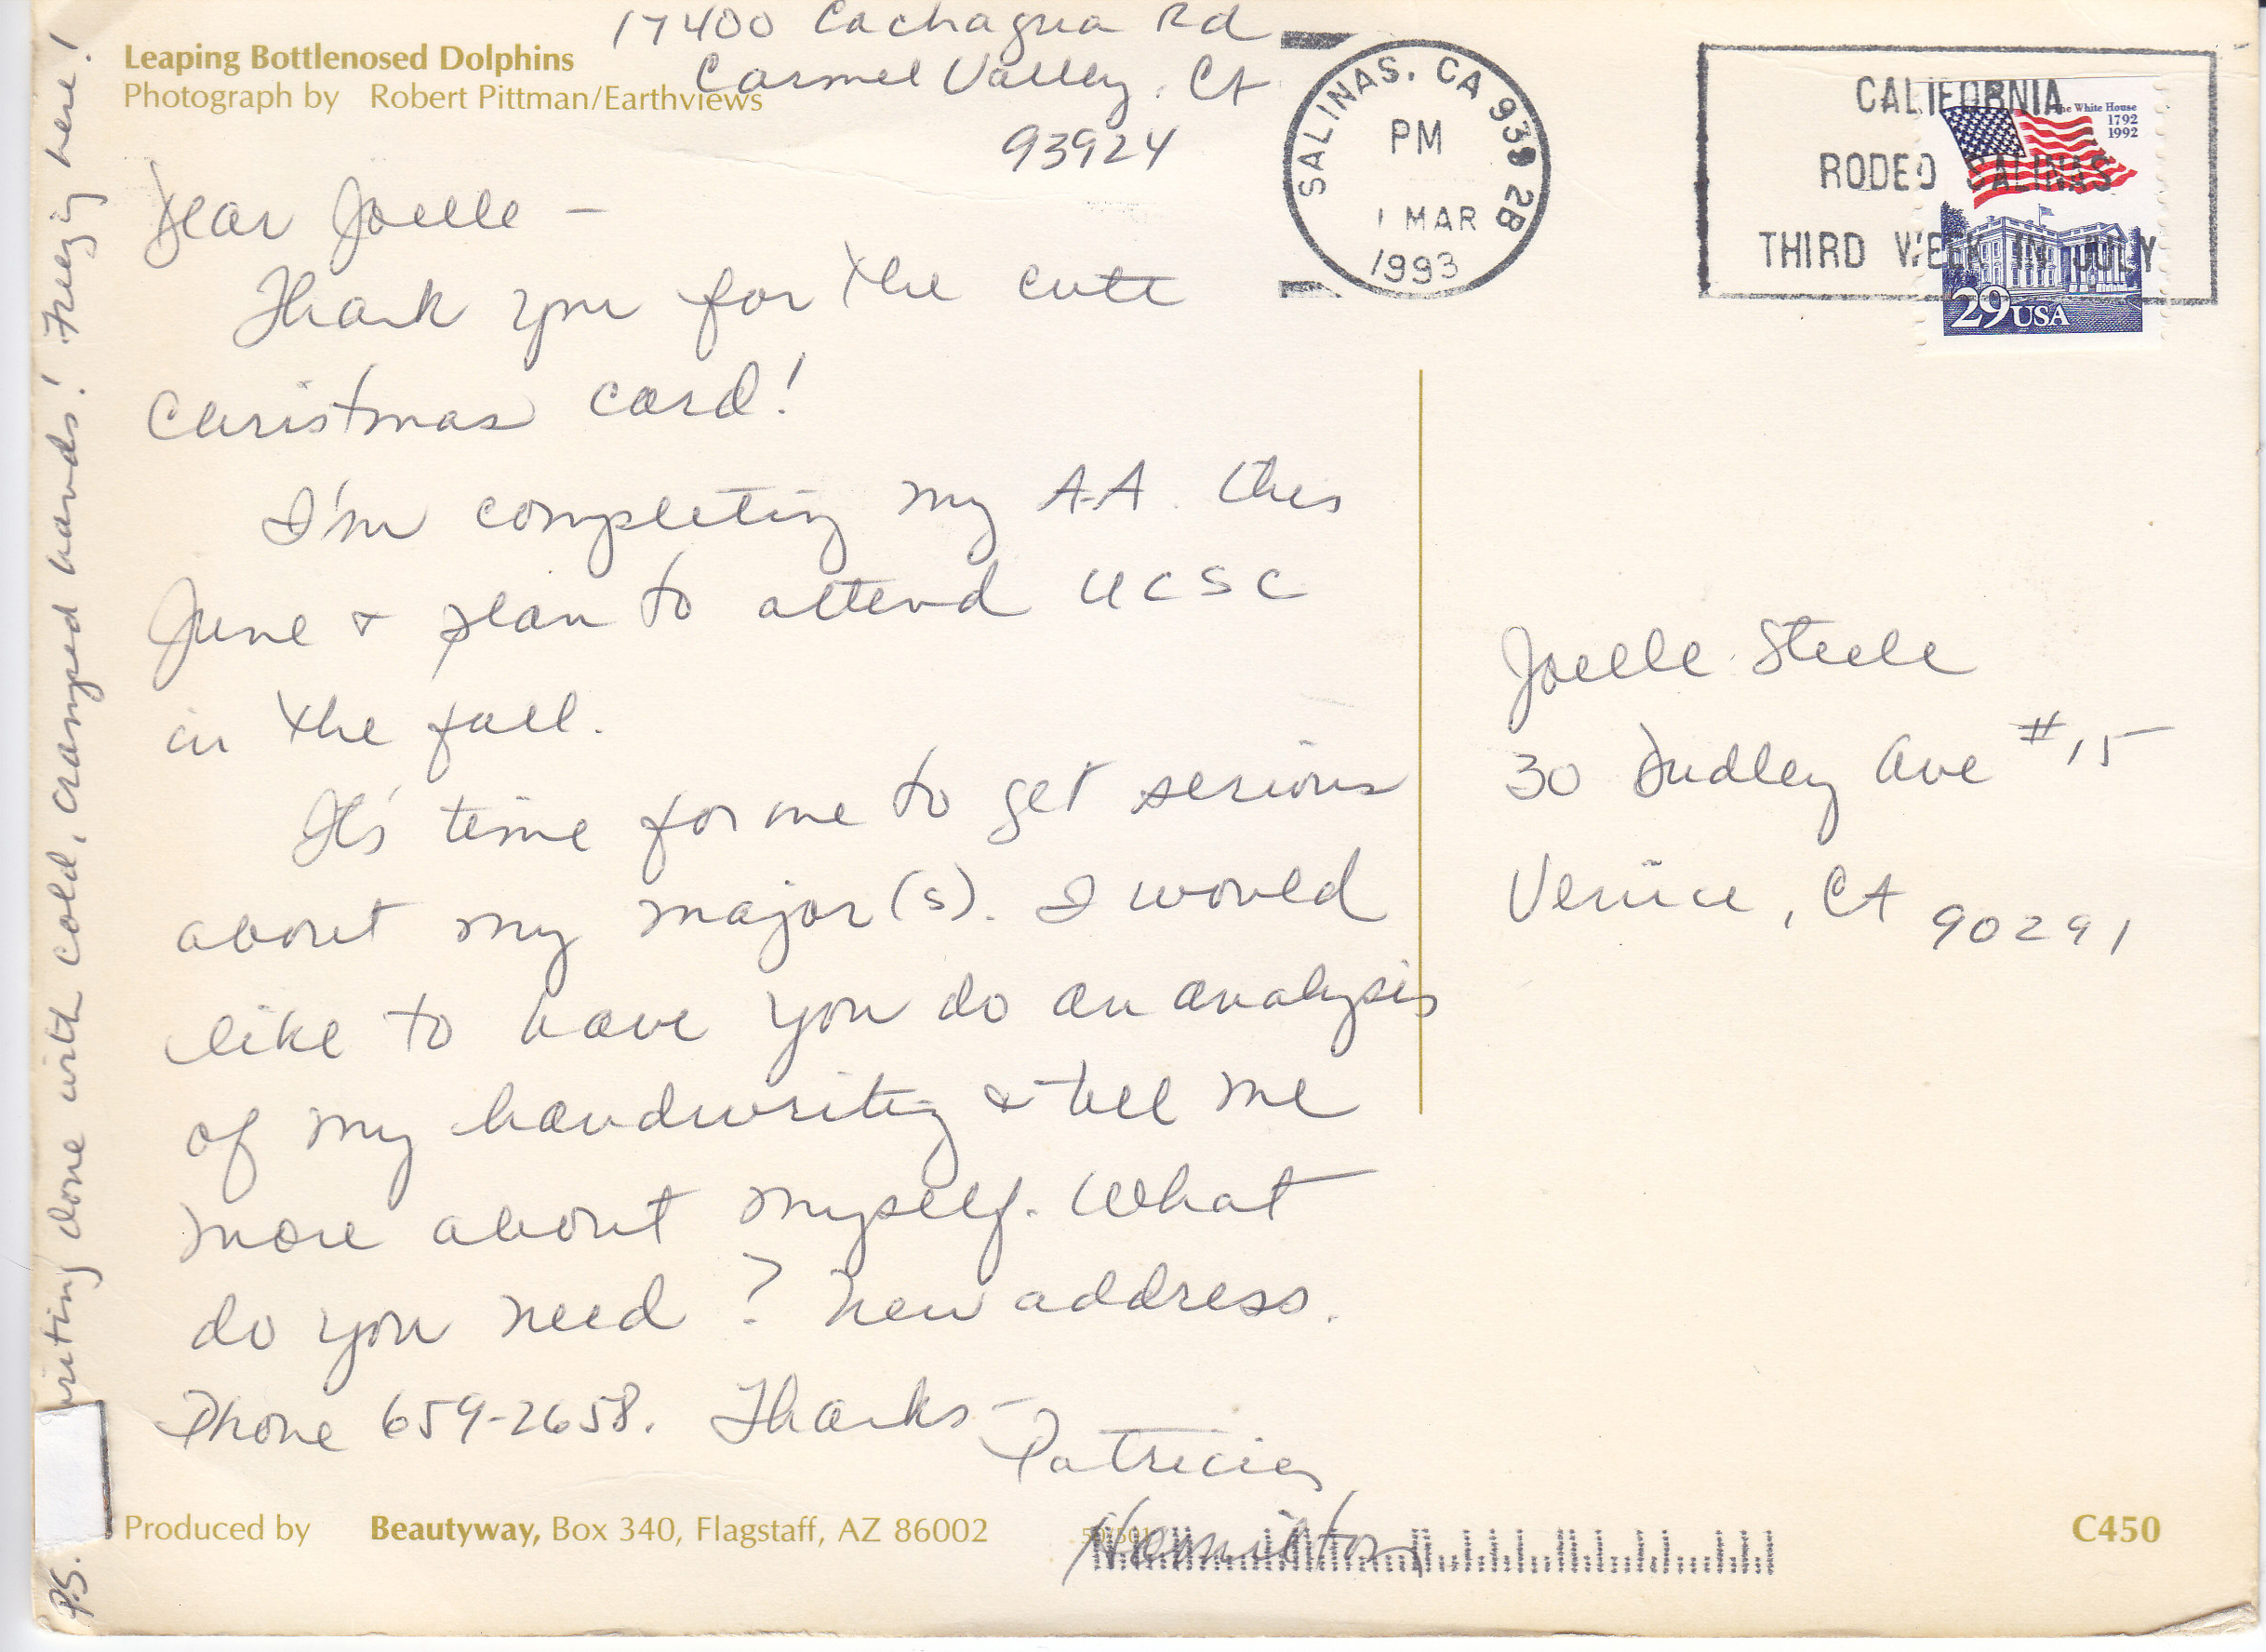 17400 Cachagua Rd
Carmel Valley, CA
93924
Leaping Bottlenosed Dolphins
Photograph by Robert Pittman/Earthviews
SALINAS, CA 939 2B
PM
1 MAR
1993
CALIFORNIA
RODEO SALINAS
THIRD WEEK IN JULY
The White House
1792
1992
29 USA
Dear Joelle –
Thank you for the cute
Christmas card!
I'm completing my A.A. this
June & plan to attend UCSC
in the fall.
It's time for me to get serious
about my major(s). I would
like to have you do an analysis
of my handwriting & tell me
more about myself. What
do you need? New address.
Phone 659-2658. Thanks –
Patricia
Hamilton
P.S. writing done with cold, cramped hands! Freezing here!
Joelle Steele
30 Dudley Ave #15
Venice, CA 90291
Produced by Beautyway, Box 340, Flagstaff, AZ 86002
C450